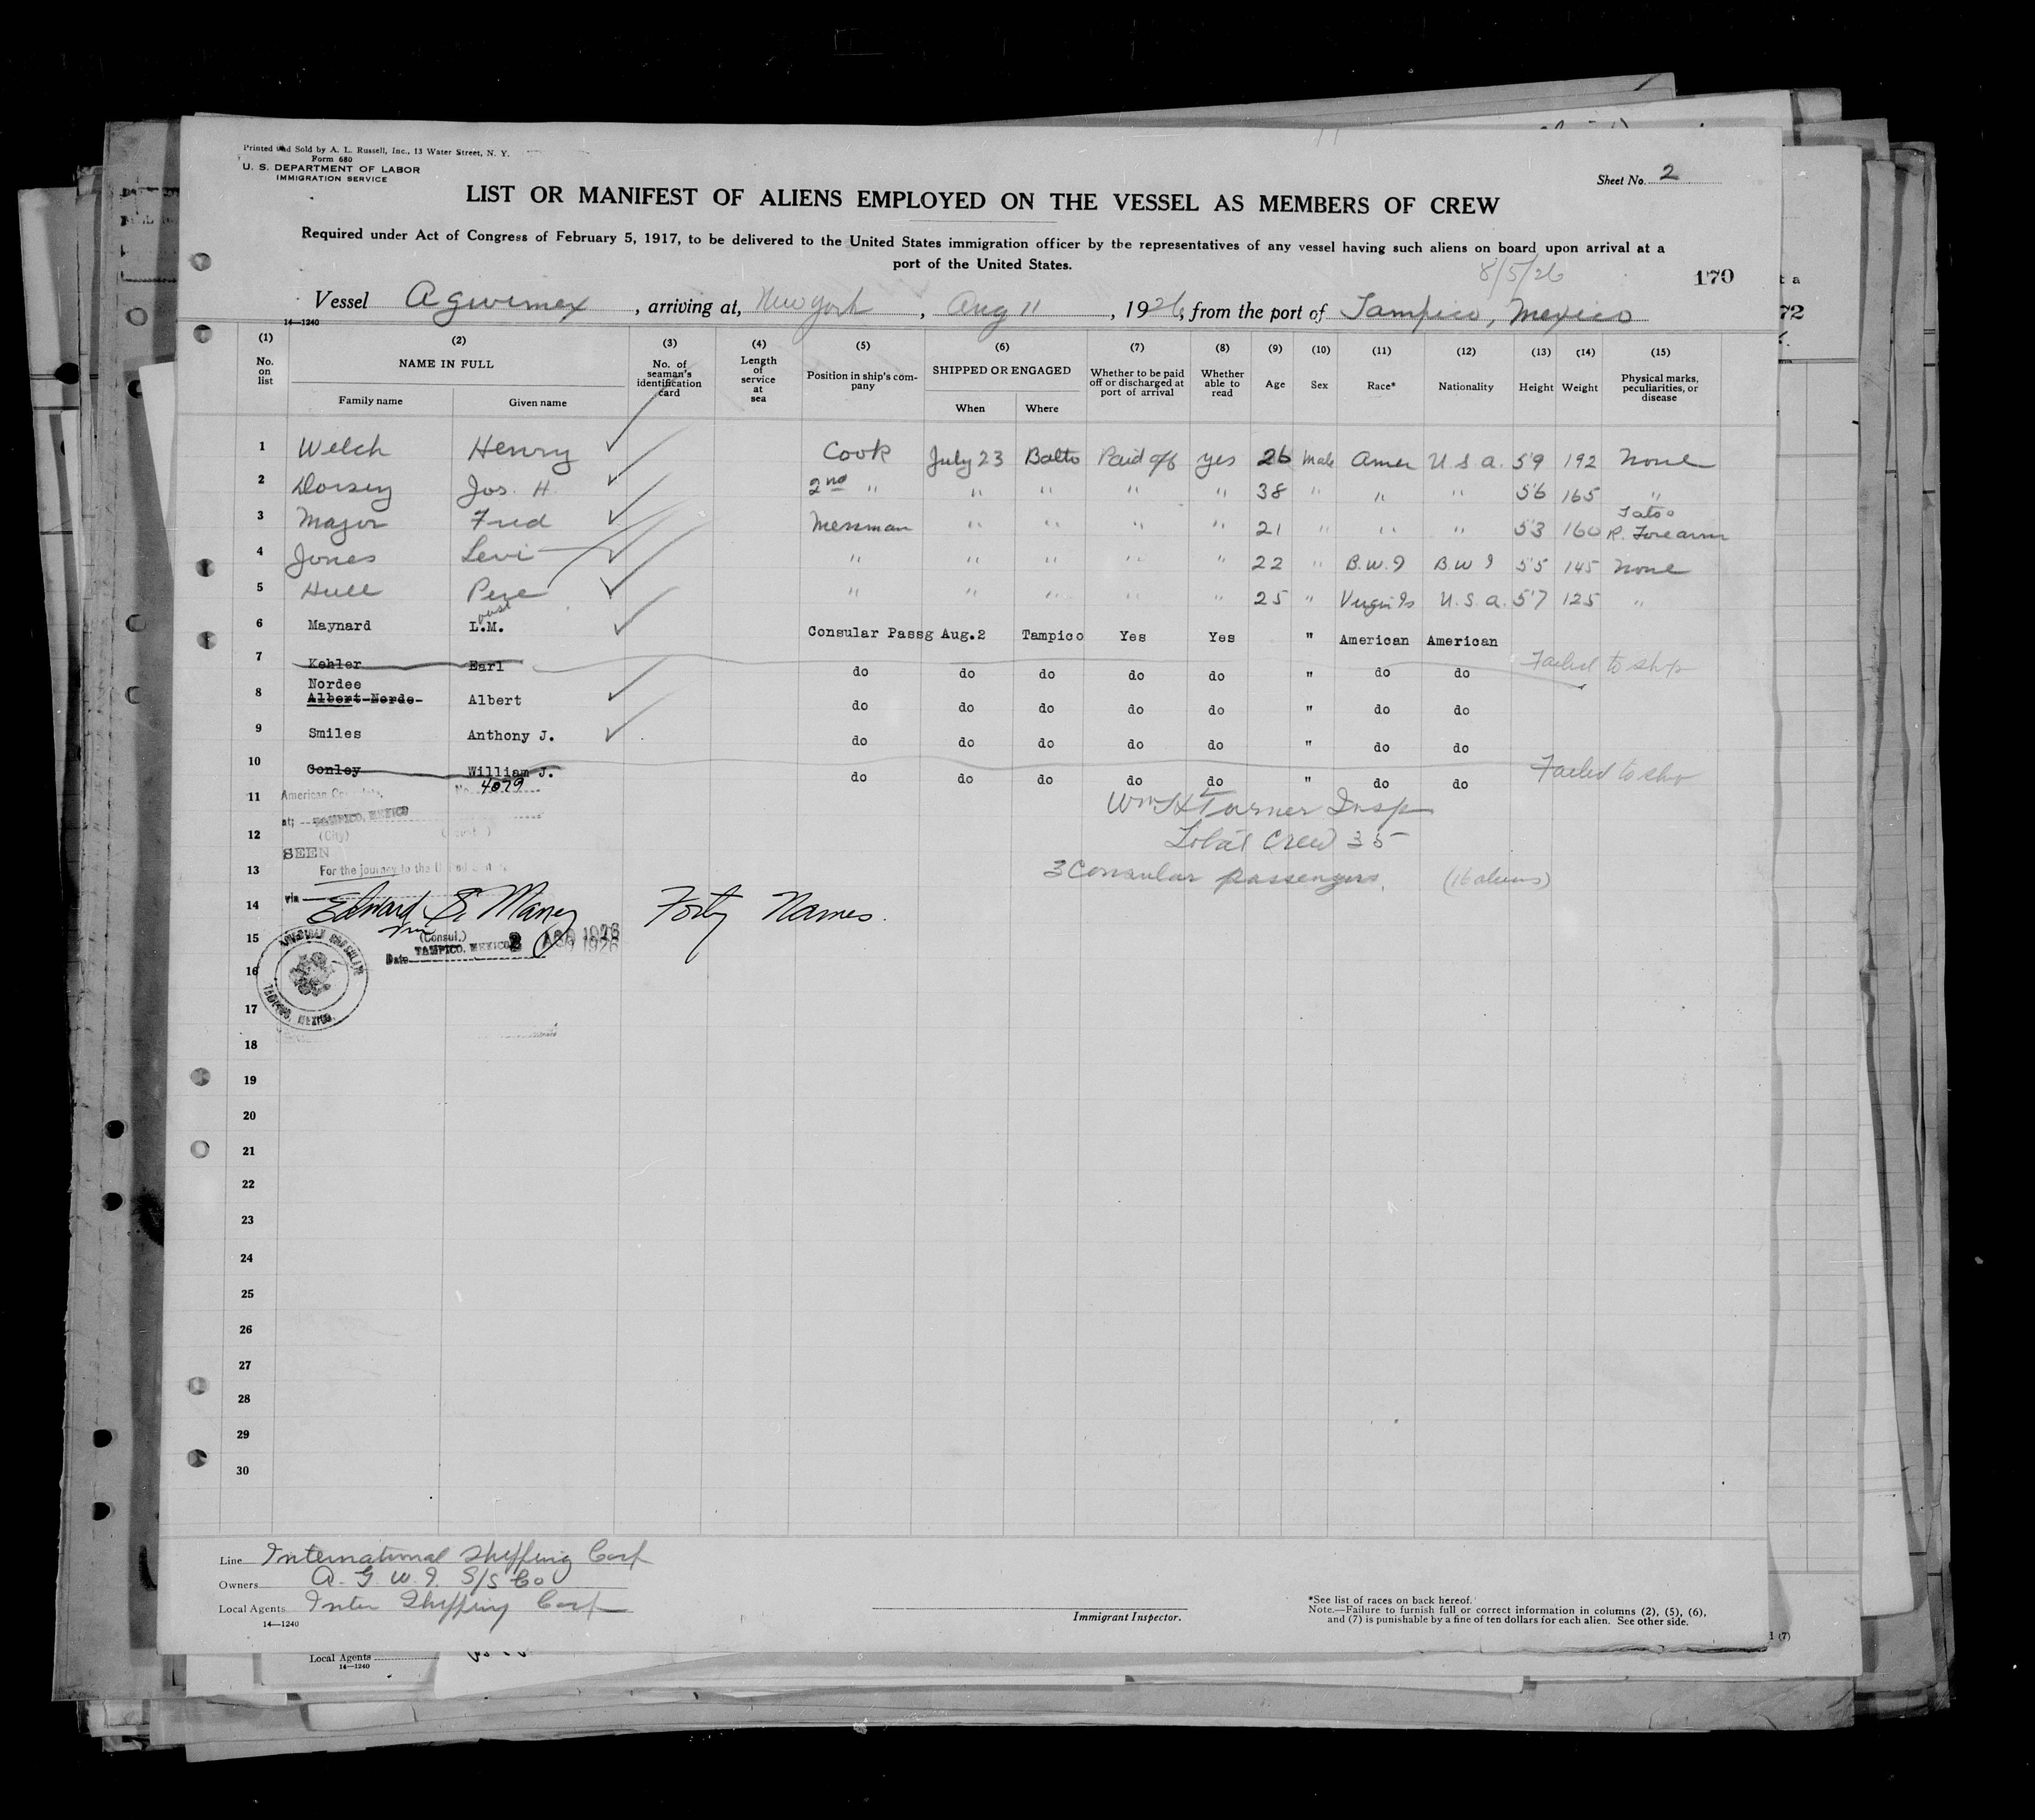 Printed and Sold by A. L. Russell, Inc., 13 Water Street, N. Y.
Form 680
U. S. DEPARTMENT OF LABOR
IMMIGRATION SERVICE
Sheet No. 2
LIST OR MANIFEST OF ALIENS EMPLOYED ON THE VESSEL AS MEMBERS OF CREW
Required under Act of Congress of February 5, 1917, to be delivered to the United States immigration officer by the representatives of any vessel having such aliens on board upon arrival at a
port of the United States.
8/5/26
170
Vessel Agwimex, arriving at, New York, Aug 11, 1926, from the port of Tampico, Mexico
14—1240
(1) (2) (3) (4) (5) (6) (7) (8) (9) (10) (11) (12) (13) (14) (15)
No. on list
NAME IN FULL
Family name
Given name
No. of seaman's identification card
Length of service at sea
Position in ship's company
SHIPPED OR ENGAGED
When
Where
Whether to be paid off or discharged at port of arrival
Whether able to read
Age
Sex
Race*
Nationality
Height
Weight
Physical marks, peculiarities, or disease
1 Welch Henry Cook July 23 Balto Paid off yes 26 Male Amer U.S.a. 5'9 192 None
2 Dorsey Jos. H. 2nd " " " " " 38 " " " 5'6 165 "
3 Major Fred Messman " " " " 21 " " " 5'3 160 Tatoo R. Forearm
4 Jones Levi " " " " " 22 " B.W.I B.W I 5'5 145 None
5 Hull " " " " " 25 " Virgin Is U.S.a. 5'7 125 "
6 Maynard L.M. Consular Passg Aug.2 Tampico Yes Yes " American American
7 Kehler Earl do do do do do " do do Failed to ship
Nordee
8 Albert-Norde- Albert do do do do do " do do
9 Smiles Anthony J. do do do do do " do do
10 Conley William J. do do do do do " do do Failed to ship
11 American Consulate,
No. 4079
Wm H Turner Insp
at; TAMPICO, MEXICO
12 (City)
Total Crew 35
SEEN
13 For the journey to the United States
3 Consular passengers. (16 aliens)
via
14 Edward S. Maney Forty Names.
15 (Consul.)
Date TAMPICO, MEXICO 2 AUG 1926
AMERICAN CONSULATE
TAMPICO, MEXICO.
16
17
18
19
20
21
22
23
24
25
26
27
28
29
30
Line International Shipping Corp
Owners A. G. W. I. S/S Co
Local Agents Inter Shipping Corp
14—1240
Immigrant Inspector.
*See list of races on back hereof.
Note.—Failure to furnish full or correct information in columns (2), (5), (6),
and (7) is punishable by a fine of ten dollars for each alien. See other side.
Local Agents
14—1240
t a
72
(7)